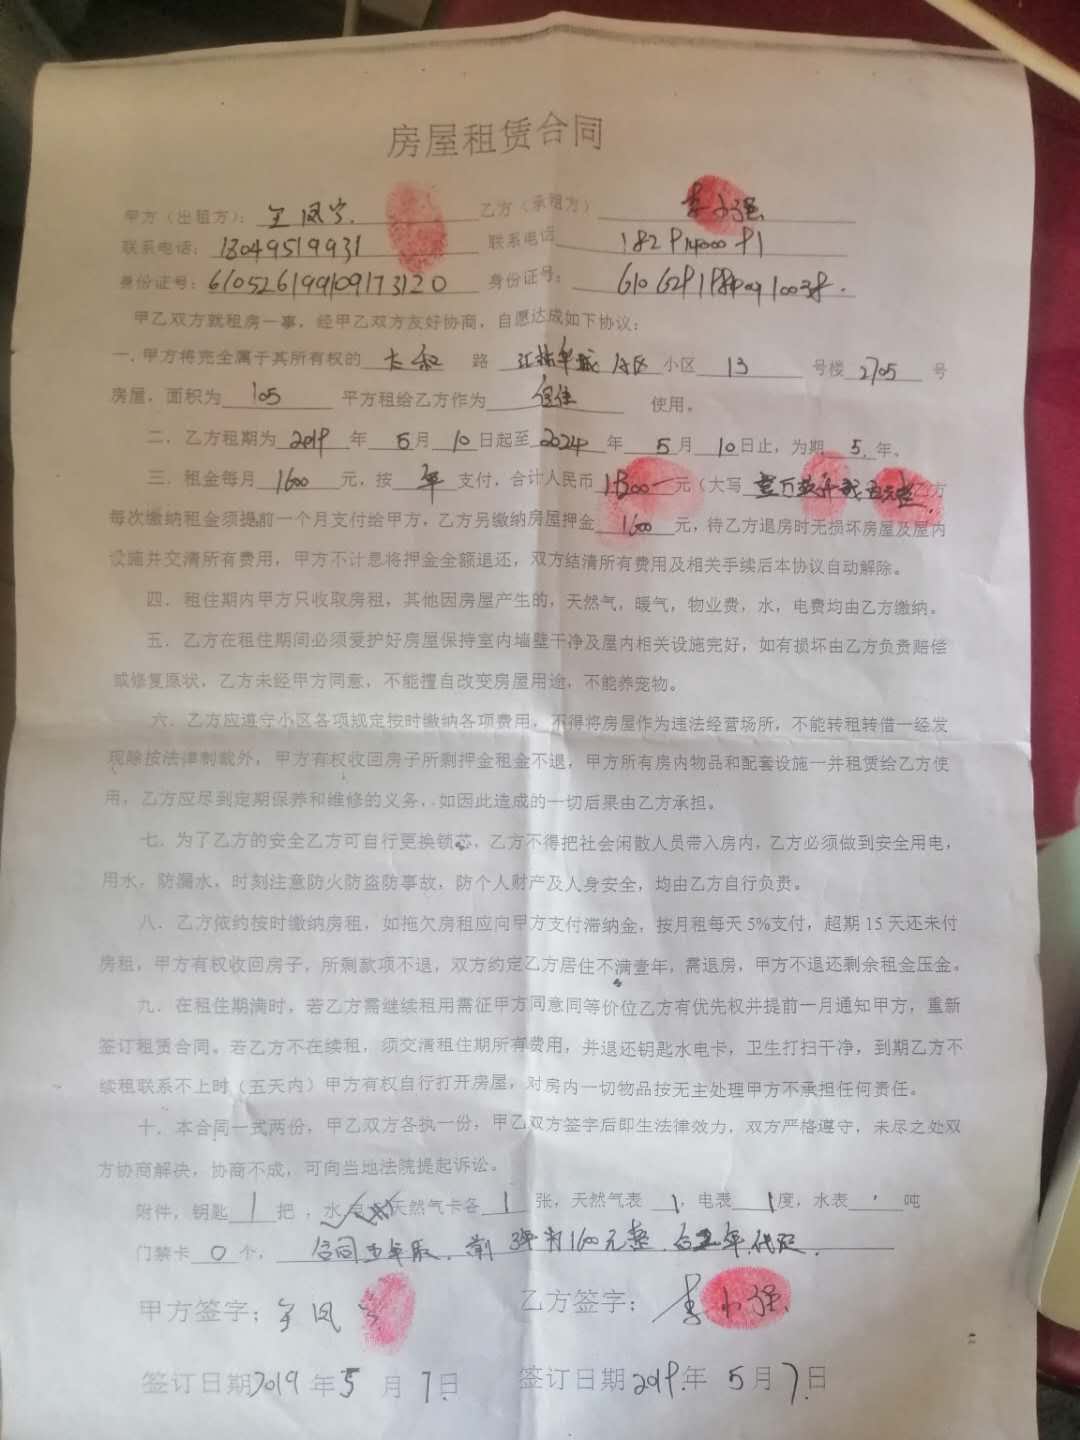 房屋租赁合同
甲方（出租方）： 乙方（承租方） 李小强
联系电话：18049519931 联系电话
身份证号：610526199109173120 身份证号：
甲乙双方就租房一事，经甲乙双方友好协商，自愿达成如下协议：
一．甲方将完全属于其所有权的 大和 路 小区 13 号楼 2705 号
房屋，面积为 105 平方租给乙方作为 居住 使用。
二．乙方租期为 2019 年 5 月 10 日起至 2024 年 5 月 10 日止，为期 5 年。
三．租金每月 1600 元，按 年 支付，合计人民币 元（大写 乙方
每次缴纳租金须提前一个月支付给甲方，乙方另缴纳房屋押金 1600 元，待乙方退房时无损坏房屋及屋内
设施并交清所有费用，甲方不计息将押金全额退还，双方结清所有费用及相关手续后本协议自动解除。
四．租住期内甲方只收取房租，其他因房屋产生的，天然气，暖气，物业费，水，电费均由乙方缴纳。
五．乙方在租住期间必须爱护好房屋保持室内墙壁干净及屋内相关设施完好，如有损坏由乙方负责赔偿
或修复原状，乙方未经甲方同意，不能擅自改变房屋用途，不能养宠物。
六．乙方应遵守小区各项规定按时缴纳各项费用，不得将房屋作为违法经营场所，不能转租转借一经发
现除按法律制裁外，甲方有权收回房子所剩押金租金不退，甲方所有房内物品和配套设施一并租赁给乙方使
用，乙方应尽到定期保养和维修的义务，如因此造成的一切后果由乙方承担。
七．为了乙方的安全乙方可自行更换锁芯，乙方不得把社会闲散人员带入房内，乙方必须做到安全用电，
用水，防漏水，时刻注意防火防盗防事故，防个人财产及人身安全，均由乙方自行负责。
八．乙方依约按时缴纳房租，如拖欠房租应向甲方支付滞纳金，按月租每天5%支付，超期15天还未付
房租，甲方有权收回房子，所剩款项不退，双方约定乙方居住不满壹年，需退房，甲方不退还剩余租金压金。
九．在租住期满时，若乙方需继续租用需征甲方同意同等价位乙方有优先权并提前一月通知甲方，重新
签订租赁合同。若乙方不在续租，须交清租住期所有费用，并退还钥匙水电卡，卫生打扫干净，到期乙方不
续租联系不上时（五天内）甲方有权自行打开房屋，对房内一切物品按无主处理甲方不承担任何责任。
十．本合同一式两份，甲乙双方各执一份，甲乙双方签字后即生法律效力，双方严格遵守，未尽之处双
方协商解决，协商不成，可向当地法院提起诉讼。
附件，钥匙 1 把，水 天然气卡各 1 张，天然气表 1，电表 1 度，水表 吨
门禁卡 0 个，
甲方签字： 乙方签字：李小强
签订日期2019年5月7日 签订日期2019年5月7日